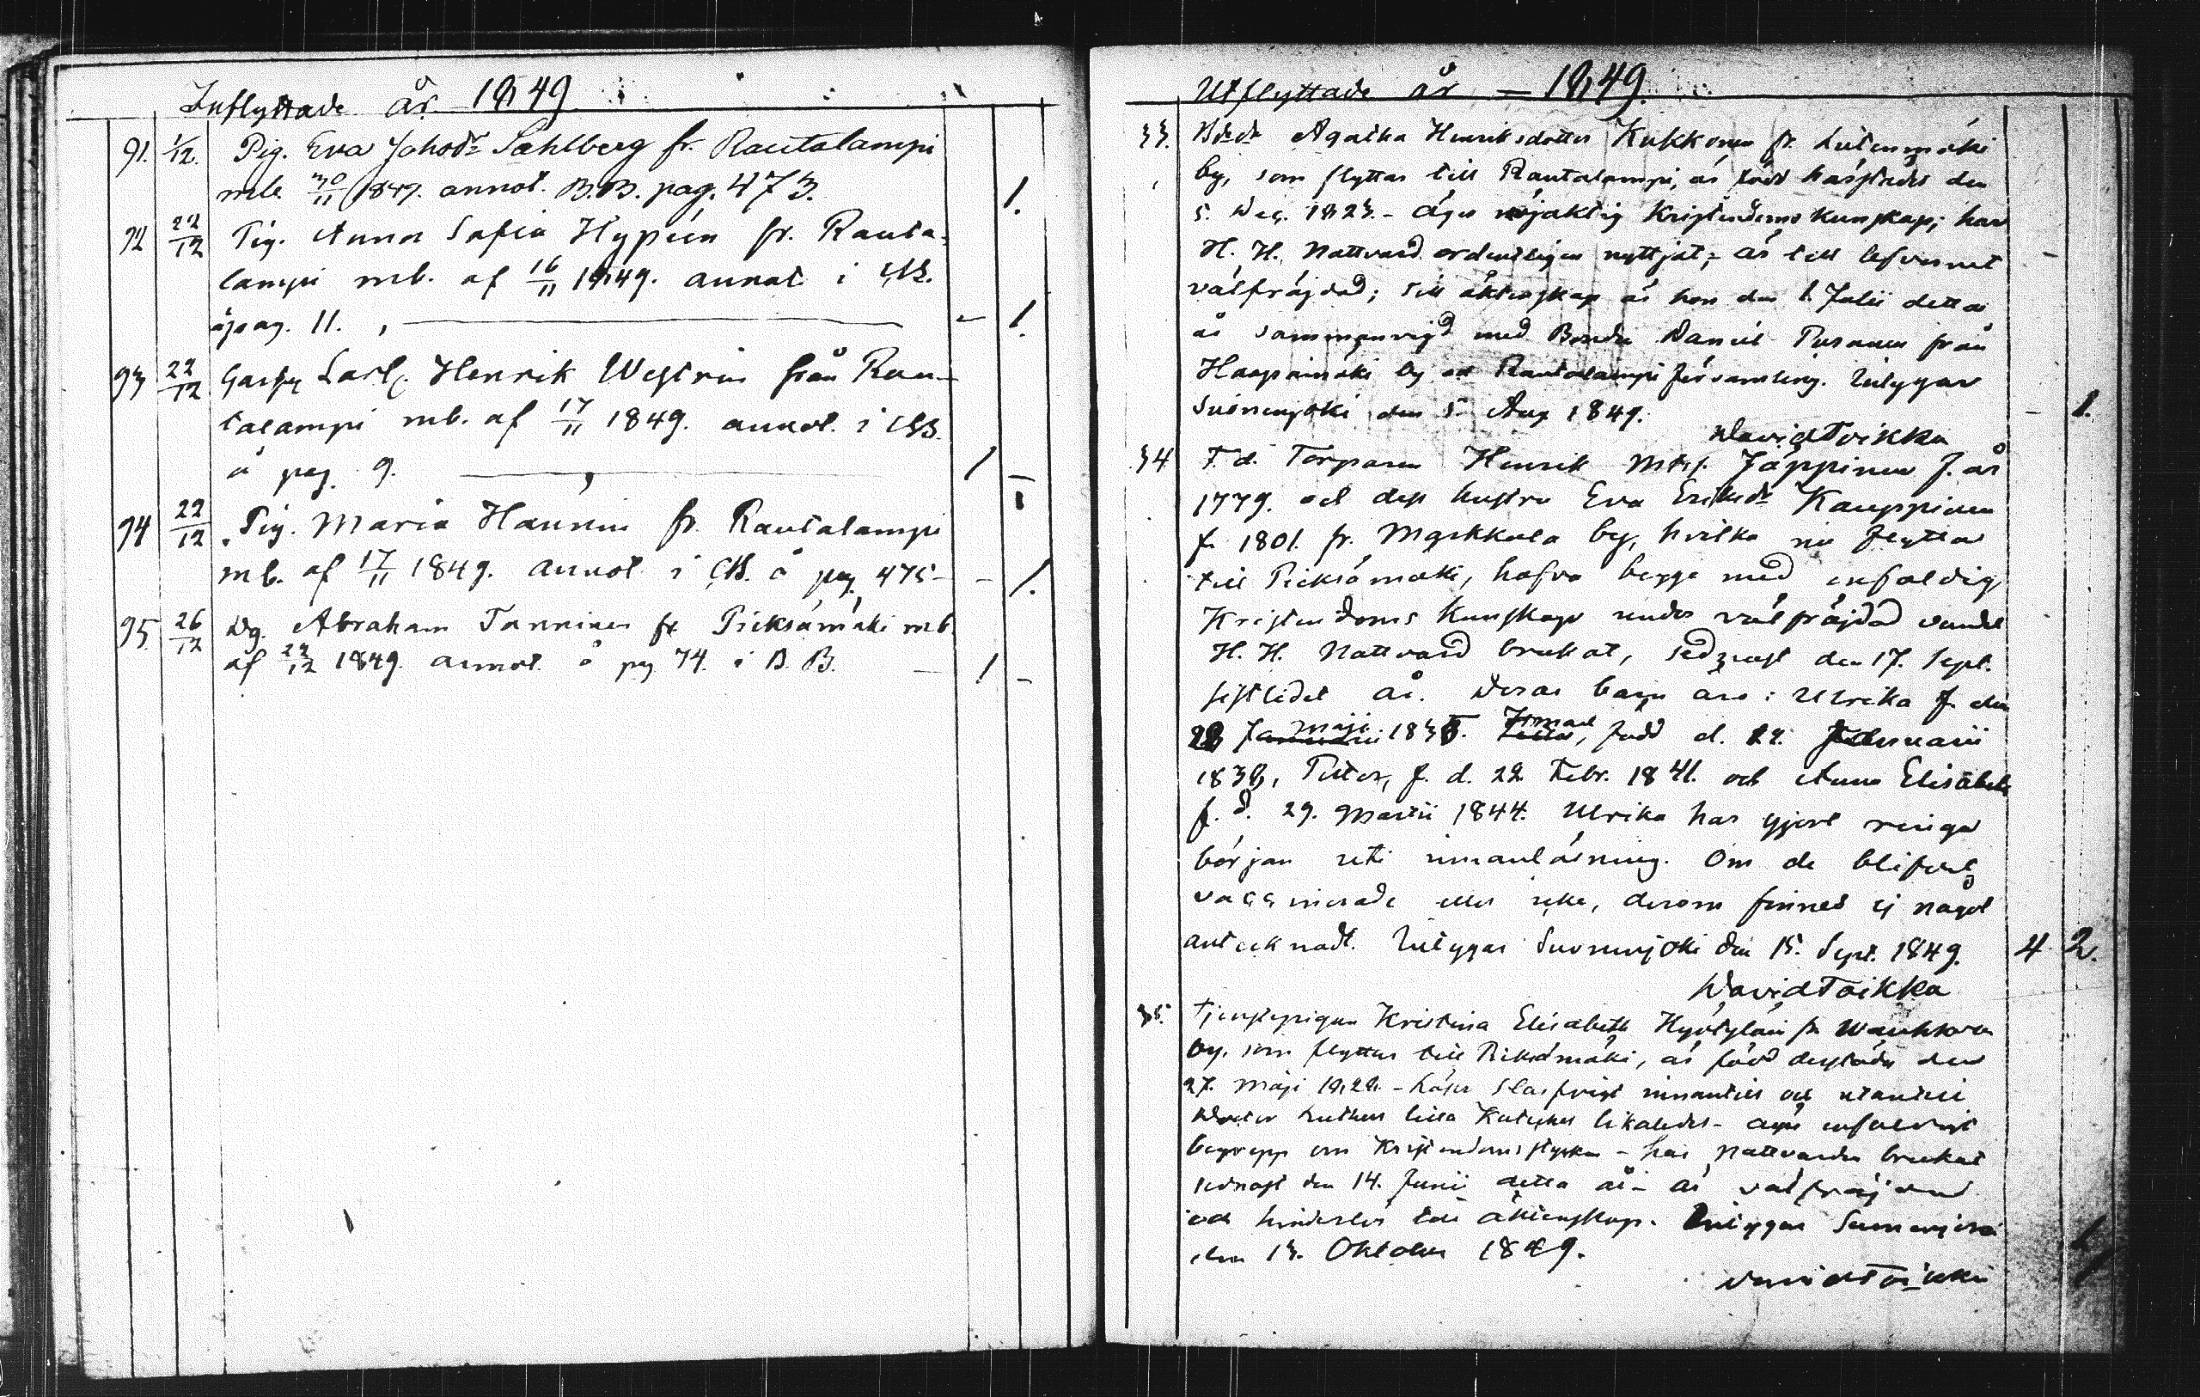 Inflyttade år 1849
91. 1/12. Pig. Eva Johsdr Sahlberg fr. Rautalampi
mb. 30/11 1849. annot. B.B. pag. 473. 1.
92 22/12 Pig. Anna Sofia Hypén fr. Rauta-
lampi mb. af 16/11 1849. annot. i
å pag. 11. - 1.
93 22/12 Carl Henrik Westrin från Rau-
talampi mb. af 17/11 1849. annot. i
å pag. 9. 1 -
94 22/12 Pig. Maria Hännin fr. Rautalampi
mb. af 17/11 1849. annot i å pag. 475 - 1.
95. 26/12 Dg. Abraham Tanninen fr Pieksämäki mb.
af 22/12 1849. annot. å pag 74. i B. B. 1 -
Utflyttade år - 1849.
33. Agatha Henriksdotter Kukkonen fr.
by, som flyttar till Rautalampi, är född härstädes den
5. Dec. 1823. - äger nöjaktig Kristendoms kunskap; har
H. H. Nattvard ordentligen nyttjat; är till lefvernet
välfräjdad; till äktenskap är hon den 1. Julii detta
år sammanvigd med Bonden Daniel Puranen från
Haapamäki by af Rautalampi församling. Intygar
Suonenjoki den 5. Aug 1849. - 1.
David Toikka
34 F. d. Torparen Henrik Jäppinen f. år
1779. och dess hustru Eva Eriksdr Kauppinen
f. 1801. fr. Markkala by, hvilka nu flytta
till Pieksämäki, hafva begge med enfaldig
Kristendoms Kunskap under välfräjdad vandel
H. H. Nattvard brukat, sednast den 17. Sept.
sistledet år. Deras barn äro: Ulrika f. den
Maji 183 född d. Februarii
183 Petter, f. d. 22 Febr. 1841. och Anna Elisabeth
f. d. 29. Martii 1844. Ulrika har gjort ringa
början uti innanläsning. Om de blifvit
vaccinerade eller icke, derom finnes ej något
antecknadt. Intygar Suonenjoki den 15. Sept. 1849. 4 2.
David Toikka
35. Tjenstepigan Kristina Elisabeth Hyötyläin fr
by, som flyttar till Pieksämäki, är född derstädes den
27. Maji - Läser innantill och utantill
Doctor Luthers lilla Kateches likaledes - äger enfaldigt
begrepp om Kristendomsstycken - har Nattvarden brukat
sednast den 14. Junii detta år - är välfräjdad
och hinderlös till äktenskap. Intygar Suonenjoki
den 13. Oktober 1849. 1
David Toikka